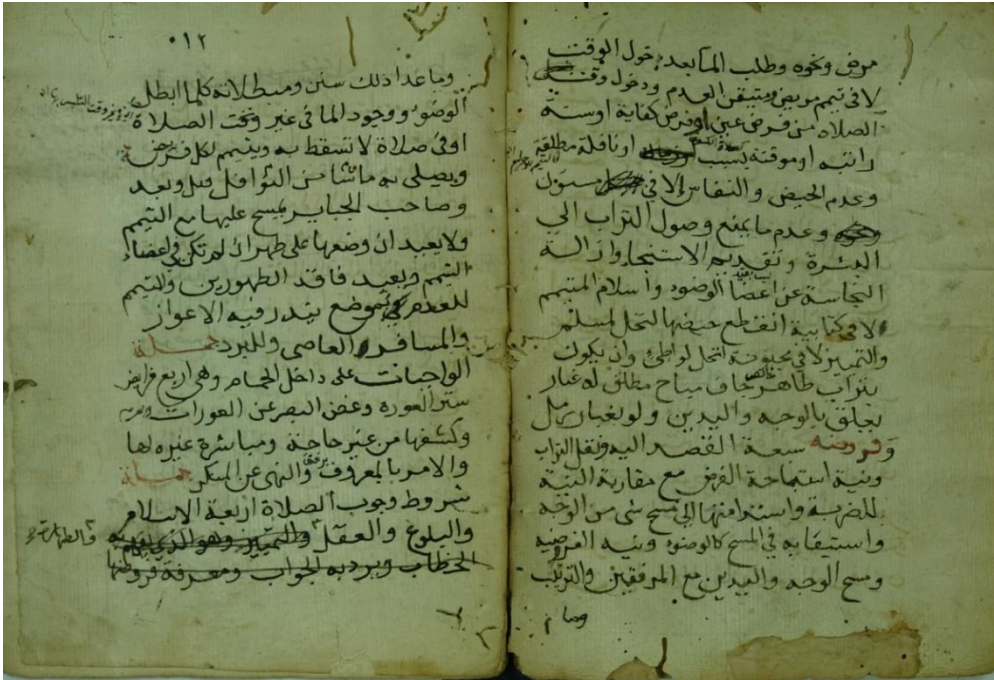 مرض ونحوه وطلب الما بعد دخول الوقت
لا في تيمم مريض ومتيقن العدم ودخول وقت
الصلاه من فرض عين او فرض كفاية او سنة
راتبه او موقتة بسبب او نافلة مطلقة
وعدم الحيض والنفاس الا في مسنون
وعدم ما يمنع وصول التراب الي
البشرة وتقديم الاستنجا وازالة
النجاسة عن اعضا الوضوء واسلام المتيمم
الا في كتابية انقطع حيضها لتحل لمسلم
والتمييز لا في مجنونة لتحل لواطئ وان يكون
بتراب طاهر خالص جاف مباح مطلق له غبار
يعلق بالوجه واليدين ولو بغبار رمل
وفروضه سبعة القصد اليه ونقل التراب
ونية استباحة الفرض مع مقارنة النية
للضربة واستدامتها الي مسح شي من الوجه
واستيفايه في المسح كالوضوء ونيه الفرضيه
ومسح الوجه واليدين مع المرفقين والترتيب
وما
٠١٢
وما عدا ذلك سنن ومبطلاته كلما ابطل
الوضوء ووجود الما في غير وقت الصلاة
او في صلاة لا تسقط به ويتيمم لكل فرض
ويصلى به ما شا من النوافل قبل وبعد
وصاحب الجباير يمسح عليها مع التيمم
ولا يعيد ان وضعها على طهر ان لم تكن في اعضاء
التيمم ويعيد فاقد الطهورين والتيمم
للعدم بموضع يندر فيه الاعواز
والمسافر العاصى وللبرد مسلة
الواجبات على داخل الحمام وهي اربع فرايض
ستر العوره وغض البصر عن العورات
وكشفها من غير حاجة ومباشرة غيره لها
والامر بالمعروف برفق والنهى عن المنكر مسلة
شروط وجوب الصلاة اربعة الاسلام
والبلوغ والعقل والتمييز وهو الذي يفهم به
الخطاب ويرد به الجواب ومعرفة فروضها